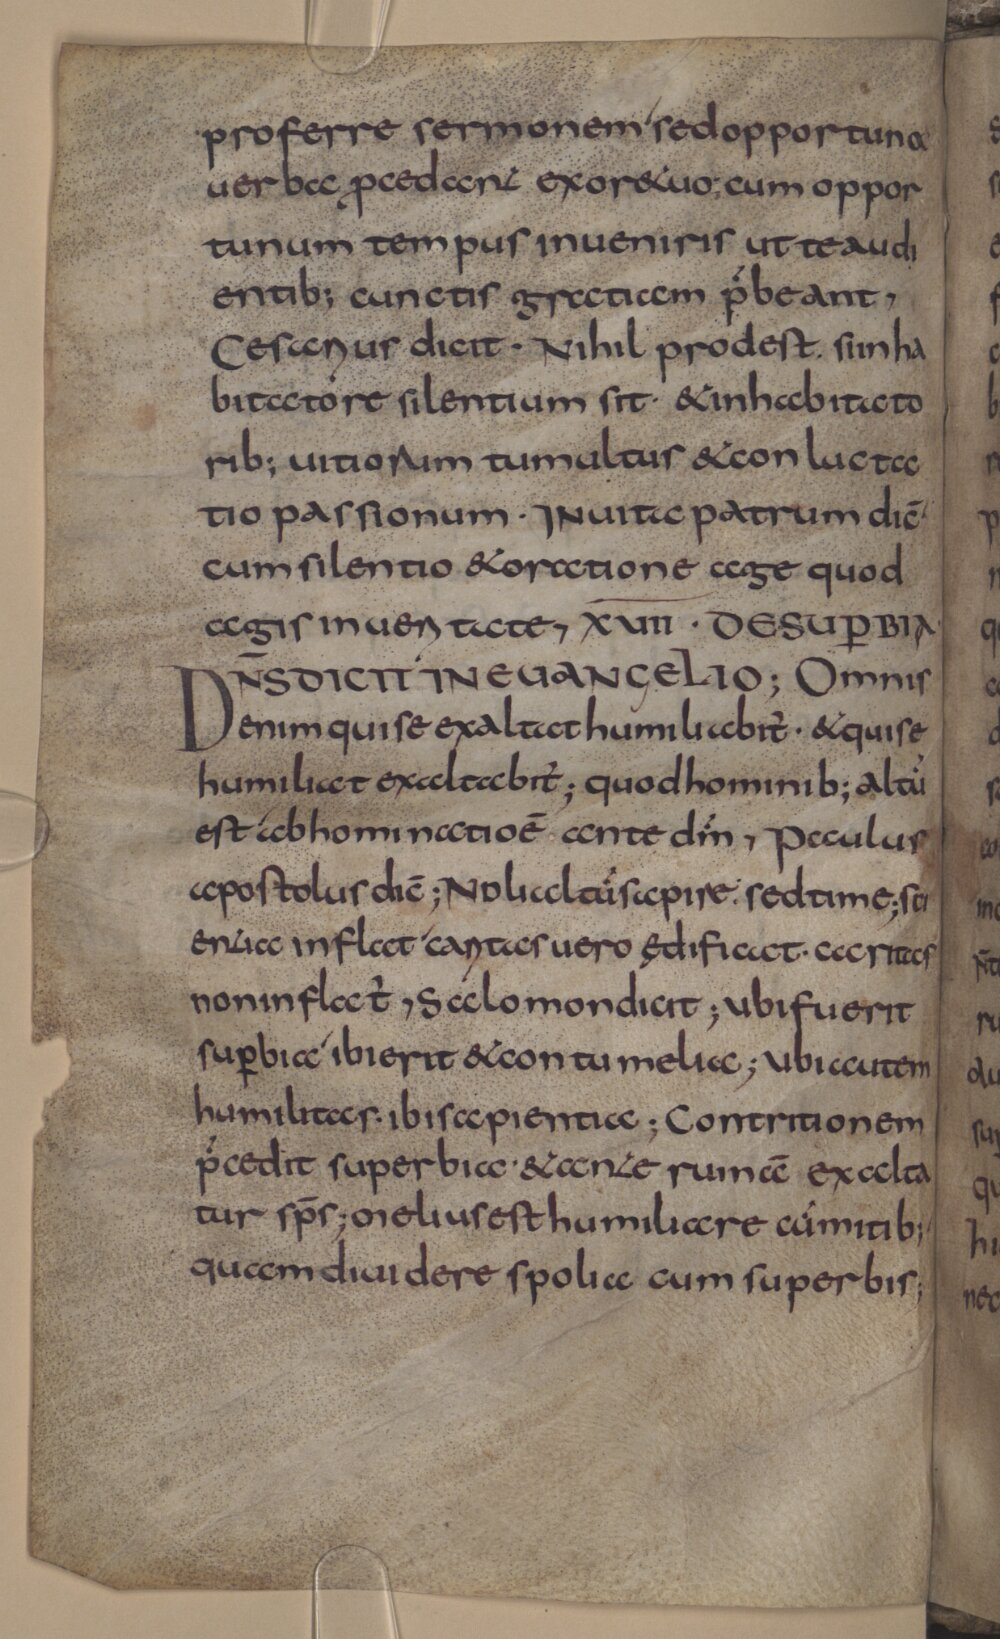 proferre sermonem sed opportuna
uerba p̱cedant ex ore tuo; cum oppor
tunum tempus inueniris ut te audi
entib; cunctis graticam p̄beant,
Cesarius dicit · Nihil prodest. si inha
bitatore silentium sit · & in habitato
rib; uitiorum tumultus & conlucta
tio passionum · In uita patrum dic̄
cum silentio & oratione age quod
agis in ueritate, XVIII · DE SUꝐBIA
DN̄S DICIT IN EUANGELIO; Omnis
enim qui se exaltat humiliabit᷑ · & qui se
humiliat exaltabit᷑; quod hominib; altū
est abhominatioē ante dm̄, Paulus
apostolus dic̄; Noli altū sapire. sed time; sci
entia inflat caritas uero ędificat · caritas
non inflat᷑, Salomon dicit; Ubi fuerit
suꝑbia ibi erit & contumelia; Ubi autem
humilitas · ibi sapientia; Contritionem
p̄cedit superbia · & ante ruinā exalta
tur sp̄s; melius est humiliare cū mitib;
quam diuidere spolia cum superbis;